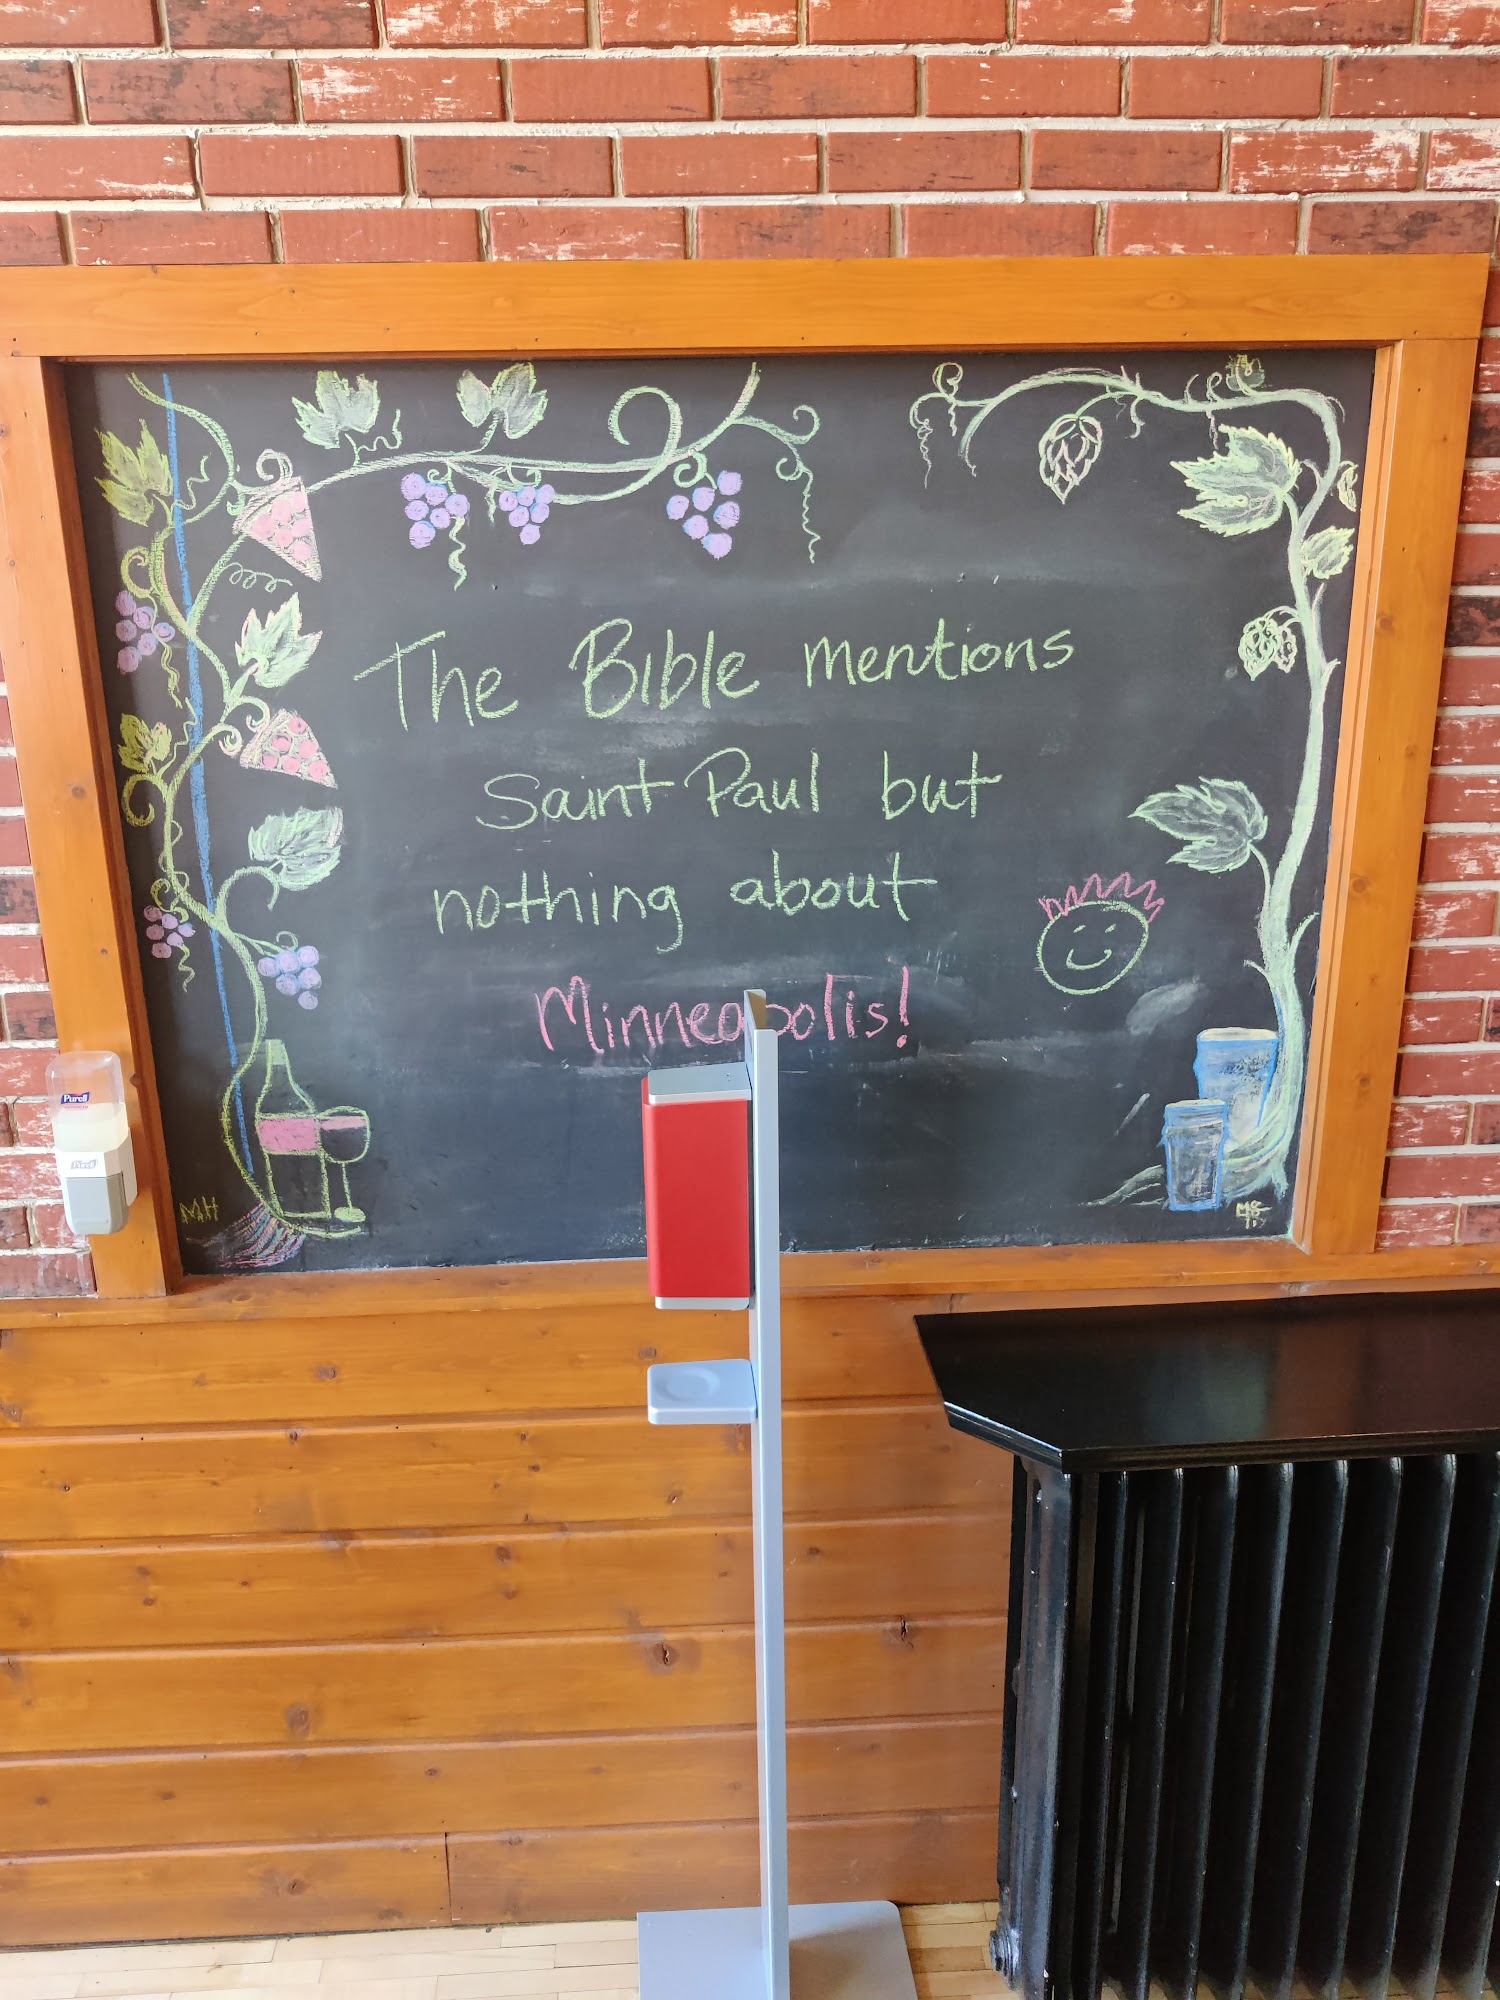 The Bible mentions
Saint Paul but
nothing about
Minneapolis!
Purell
Purell
MH